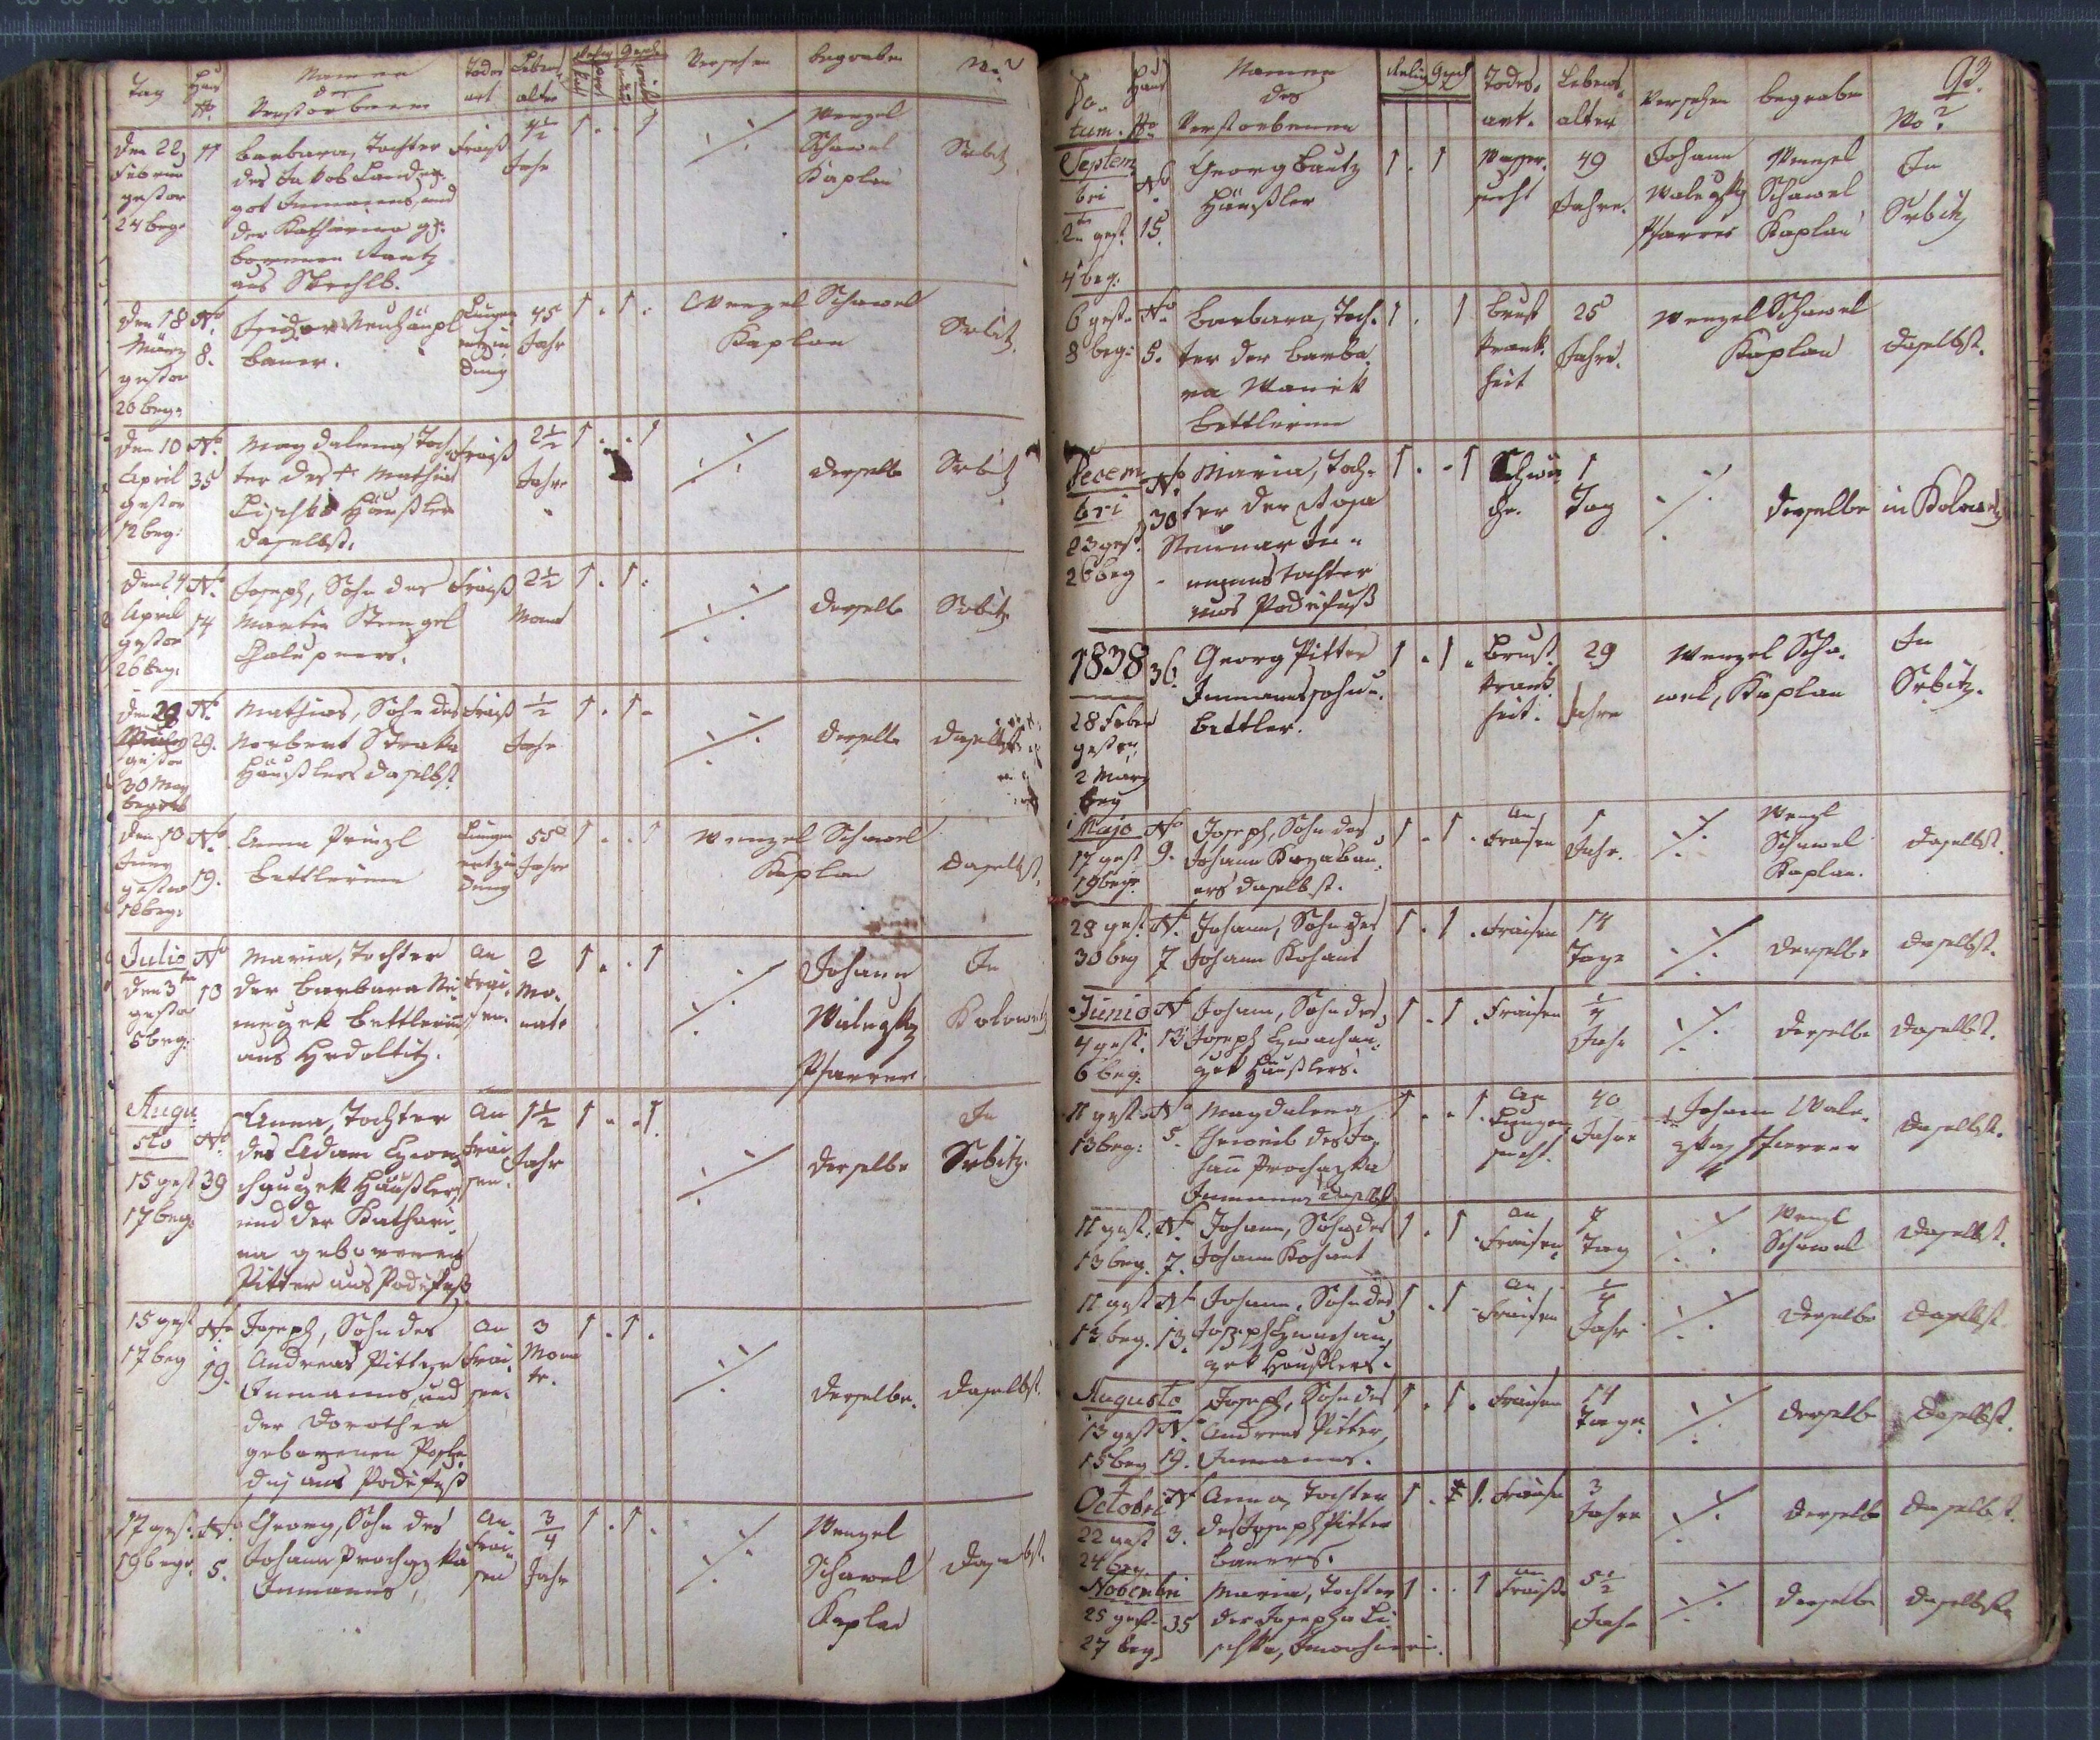 Tag
Haus
No.
Namen
der
Verstorbenen
Todes
art
Lebens
alter
Versehen
begraben
Wo?
den 22
Februar
gestor
24 beg.
11
Barbara, Tochter
des Jakob
Inmannes, und
der Katharina ge:
borenen
aus
Frais
Jahr
1 . . 1
Wenzel
Schawel
Kaplan
Srbitz
den 18
März
gestor
20 beg.
No.
8.
Bauer.
Lungen
entzün
dung
45
Jahr
1 . 1 .
Wenzel Schawel
Kaplan
Srbitz.
den 10
April
gestor
12 beg:
No.
35
Magdalena, Toch
ter des † Mathias
Lischka Häußler
daselbst.
Frais
2½
Jahr
1 . . 1
derselbe
Srbitz
den 24
April
gestor
26 beg:
No.
14
Joseph, Sohn des
Martin Stengel
Chalupners.
Frais
2½
Monat
1 . 1 .
derselbe
Srbitz
den 28
gestor
30 May
No.
29.
Mathias, Sohn des
Norbert Straka
Häußlers daselbst
Frais
½
Jahr
1 . 1 .
derselbe
daselbst
den 10
Juny
gestor
12 beg:
No.
19.
Anna Prinzl
Bettlerinn
Lungen
entzün
dung
55
Jahre
1 . . 1
Wenzel Schawel
Kaplan
daselbst.
Julio
den 3ten
gestor
5 beg:
No
13
Maria, Tochter
der Barbara
Bettlerinn
aus Hrdoltitz.
An
Frai
sen.
2
Mo.
nate
1 . . 1
Johann
Walezky
Pfarrer
In
Kolowetz
Augu
sto
15 gest
17 beg.
No.
39
Anna, Tochter
des Adam
Häußlers
und der Kathari
na geborenen
Pitter aus Podefuß
An
Frai
sen.
1½
Jahr
1 . . 1.
derselbe
In
Srbitz.
15 gest
17 beg
No.
19.
Joseph, Sohn des
Andreas Pitter
Inmannes, und
der Dorothea
geborenen
aus Podefuß
An
Frai
sen.
3
Mona
te.
1 . 1 .
derselbe.
daselbst.
17 gest.
19 begr.
No.
5.
Georg, Sohn des
Johann Prochazka
Inmannes,
An
Frai
sen
¾
Jahr
1 . 1 .
Wenzel
Schawel
Kaplan
93.
Da
tum.
Haus
No
Namen
des
Verstorbenen
Relig
Gesch
Todes.
art.
Lebens
alter
Versehen
begraben
Wo?
Septem
bri
2ten gest.
4 beg:
No
15.
Georg Bautz
Häußler
1 . 1
Wasser.
sucht
49
Jahre.
Johann
Walezky
Pfarrer
Wenzel
Schawel
Kaplan
In
Srbitz
6 gest.
8 beg:
No
5.
Barbara, Toch.
ter der Barba
ra Wanek
Bettlerinn
1 . 1
Brust
krank.
heit
25
Jahre.
Wenzel Schawel
Kaplan
daselbst.
Decem
bri
23 gest.
26 beg
No
30
Maria, Toch.
ter der Rosa
In.
manns tochter
aus Podefuß
1 . . 1
Schwä
che.
1
Tag
derselbe
in Kolowetz
1838
28 Feber
gestor,
2 März
beg
36.
Georg Pitter
Inmannssohn.
Bettler.
1 . 1 .
Brust.
krank.
heit.
29
Jahre
Wenzel Scha.
wel, Kaplan
In
Srbitz.
Majo
17 gest
19 begr.
No
9.
Joseph, Sohn des
Johann
daselbst.
1 . 1 .
An
Fraisen
1
Jahr.
Wenzl
Schawel
Kaplan.
daselbst.
28 gest.
30 beg
No.
7
Johann, Sohn des
Johann Kohaut
1 . 1 .
Fraisen
14
Tage
derselbe
daselbst.
Junio
4 gest.
6 beg:
No
13
Johann, Sohn des
Joseph
Häußlers.
1 . 1 .
Fraisen
¼
Jahr
derselbe
daselbst.
11 gest.
13 beg:
No
5.
Magdalena
Eheweib des Jo
hann Prochazka
Inmannes daselbst
1 . . 1.
An
Lungen
sucht.
40
Jahre
Johann Wale.
zky Pfarrer
daselbst.
11 gest.
13 beg.
No.
7.
Johann, Sohn des
Johann Kohaut
1 . 1
An
Fraisen.
Tag
Wenzl
Schawel
daselbst.
11 gest
13 beg.
No
13.
Johann, Sohn des
Joseph
Häußlers.
1 . 1
An
Fraisen
¼
Jahr
derselbe
daselbst.
Augusto
13 gest
15 beg
No.
19.
Joseph, Sohn des
Andreas Pitter,
Inmannes.
1 . 1 .
Fraisen
14
Tage.
derselbe
daselbst.
October
22 gest
24 beg.
No
3.
Anna, Tochter
des Joseph Pitter
Bauers.
Fraisen
3
Jahre
derselbe
daselbst.
Novembri
25 gest.
27 beg.
35
Maria, Tochter
der Josepha Li
schka,
1 . . 1
An
Fraise
5½
Jahr
derselbe
daselbst.